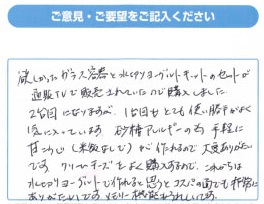 ご意見・ご要望をご記入ください
欲しかったガラス容器と水切りヨーグルトキットのセットが
通販TVで販売されていたので購入しました
2台目になりますが、1台目もとても使い勝手がよく
気に入っています 砂糖アレルギーの為 手軽に
甘こうじ(米飯なしで)が作れるので大変ありがたい
です。クリームチーズをよく購入するので、これからは
水切りヨーグルトで作れると思うとコスパの面でも非常に
ありがたいです メモリー機能もうれしいです。